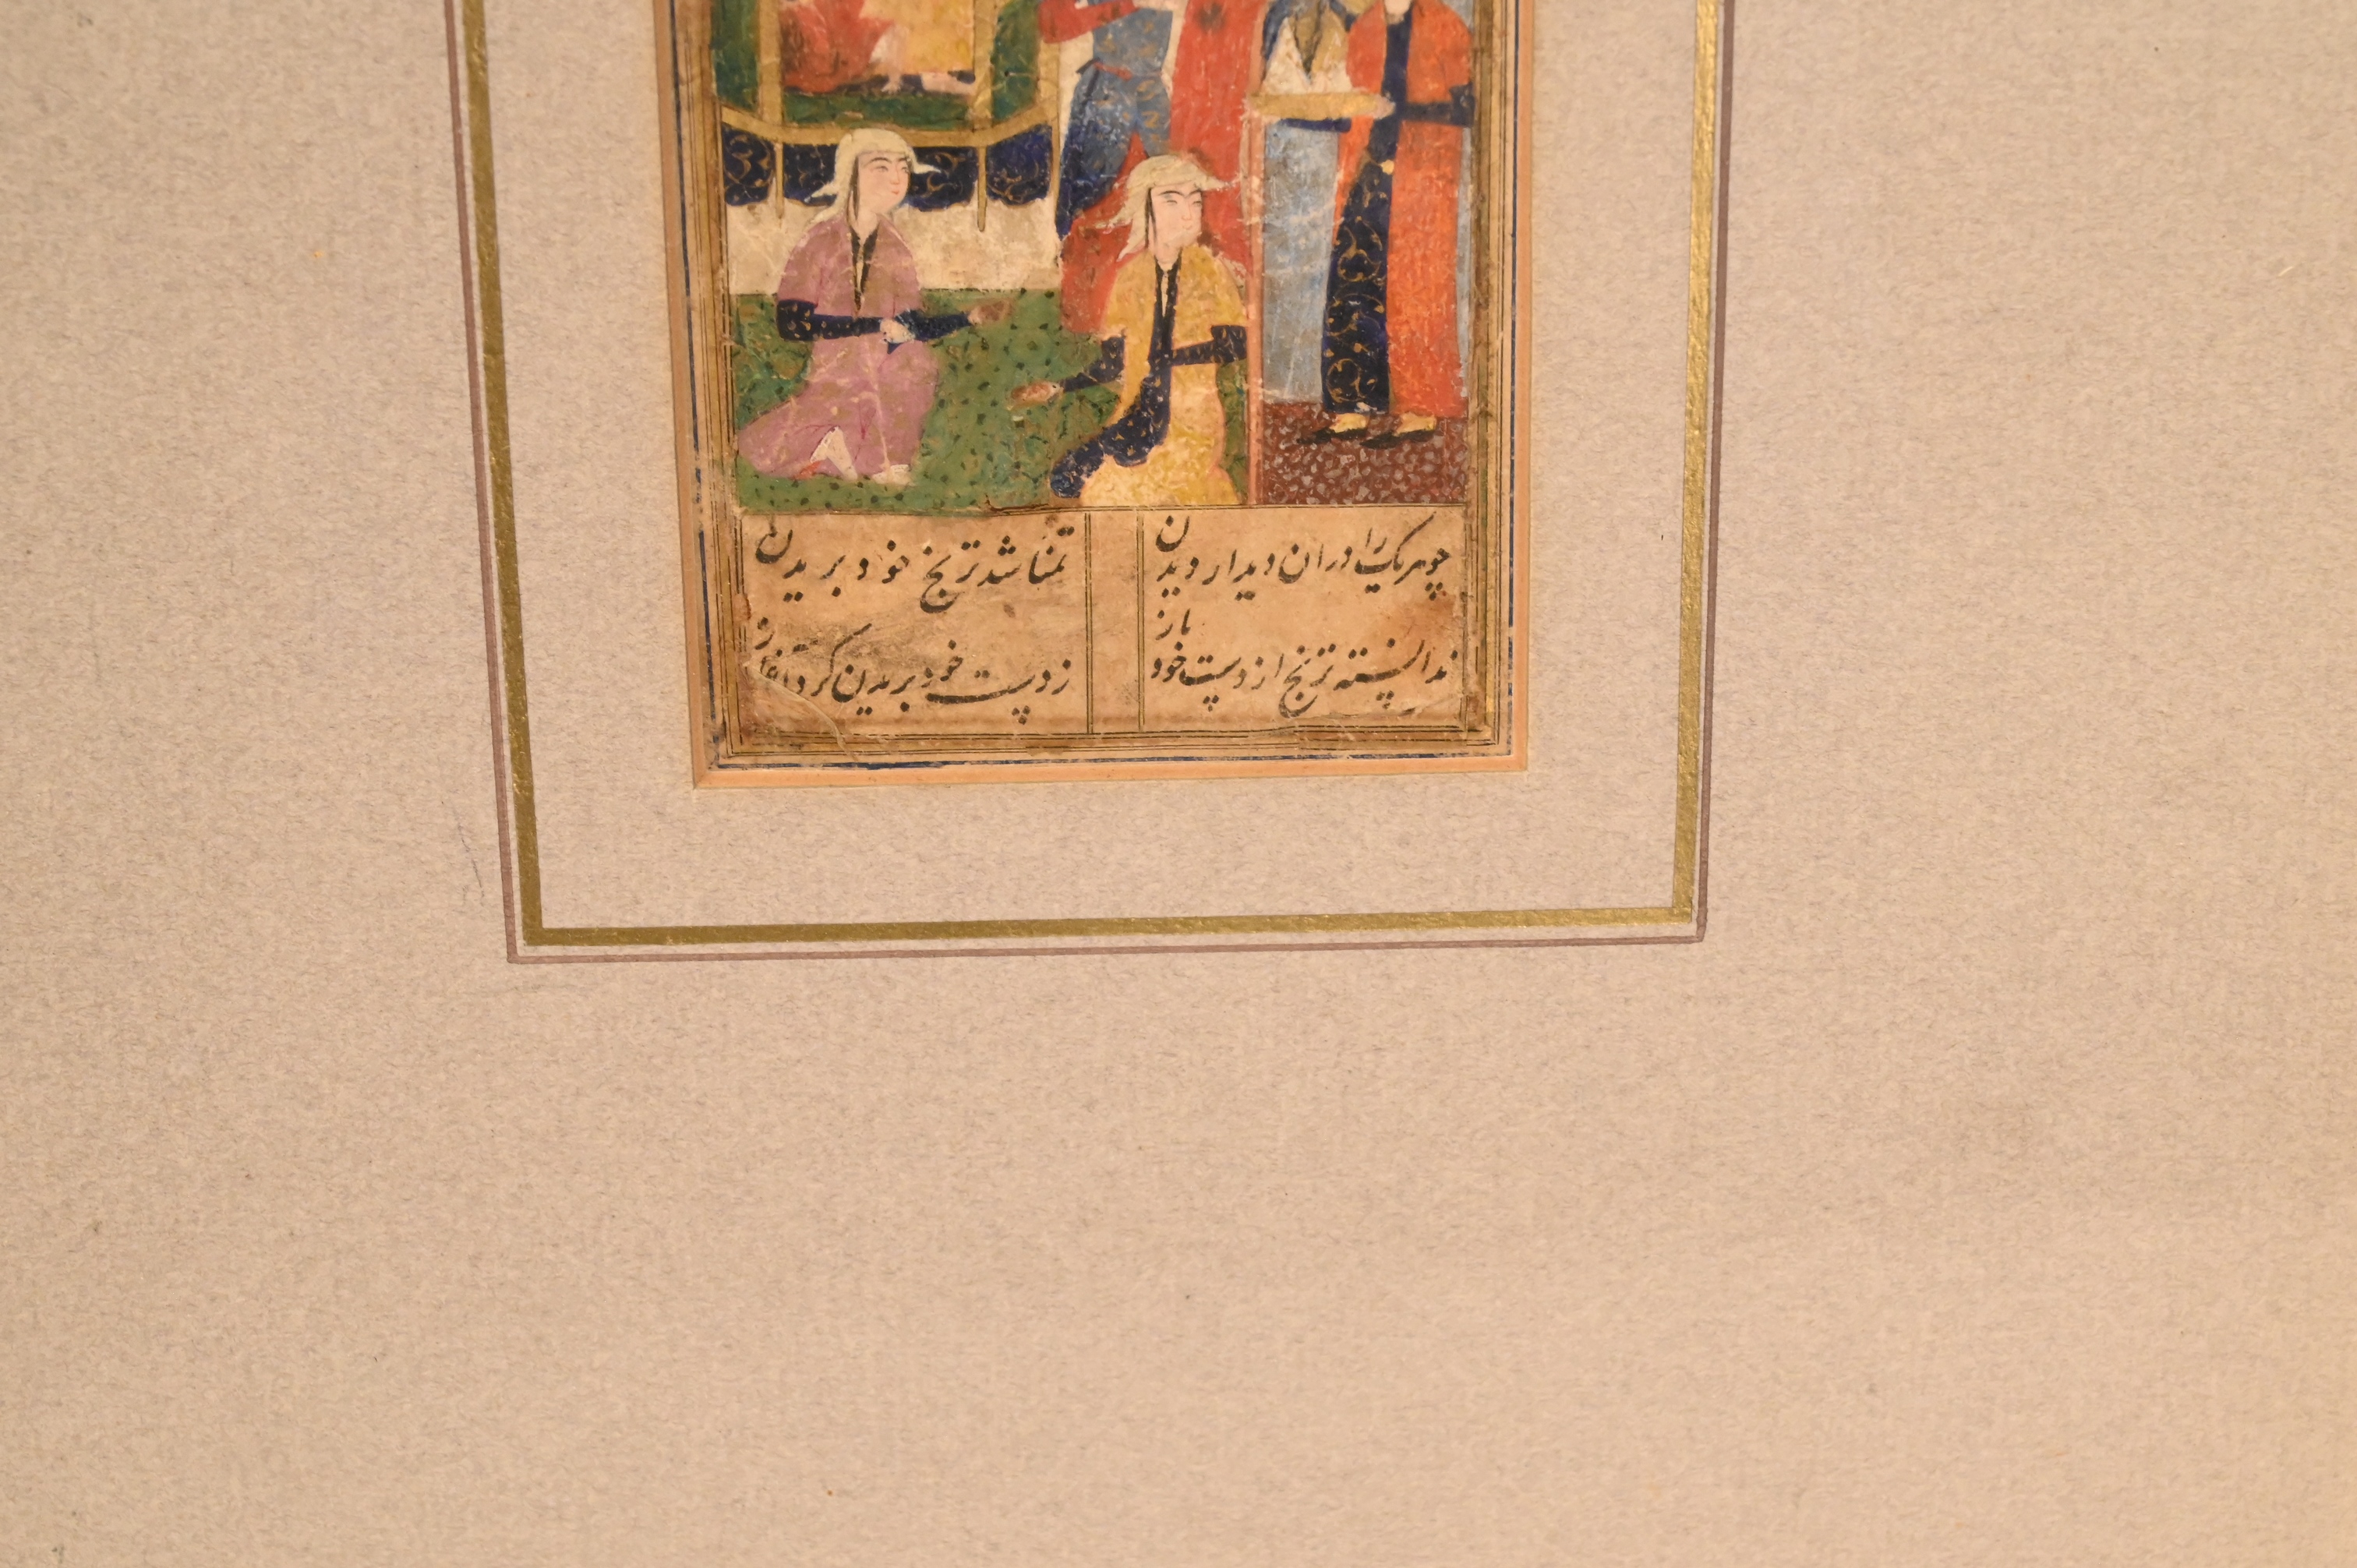 چو هریک را دران دیدار دیدن
تمنا شد ترنج خود بریدن
ندانسته ترنج از دست خود باز
ز دست خود بریدن کرد آغاز